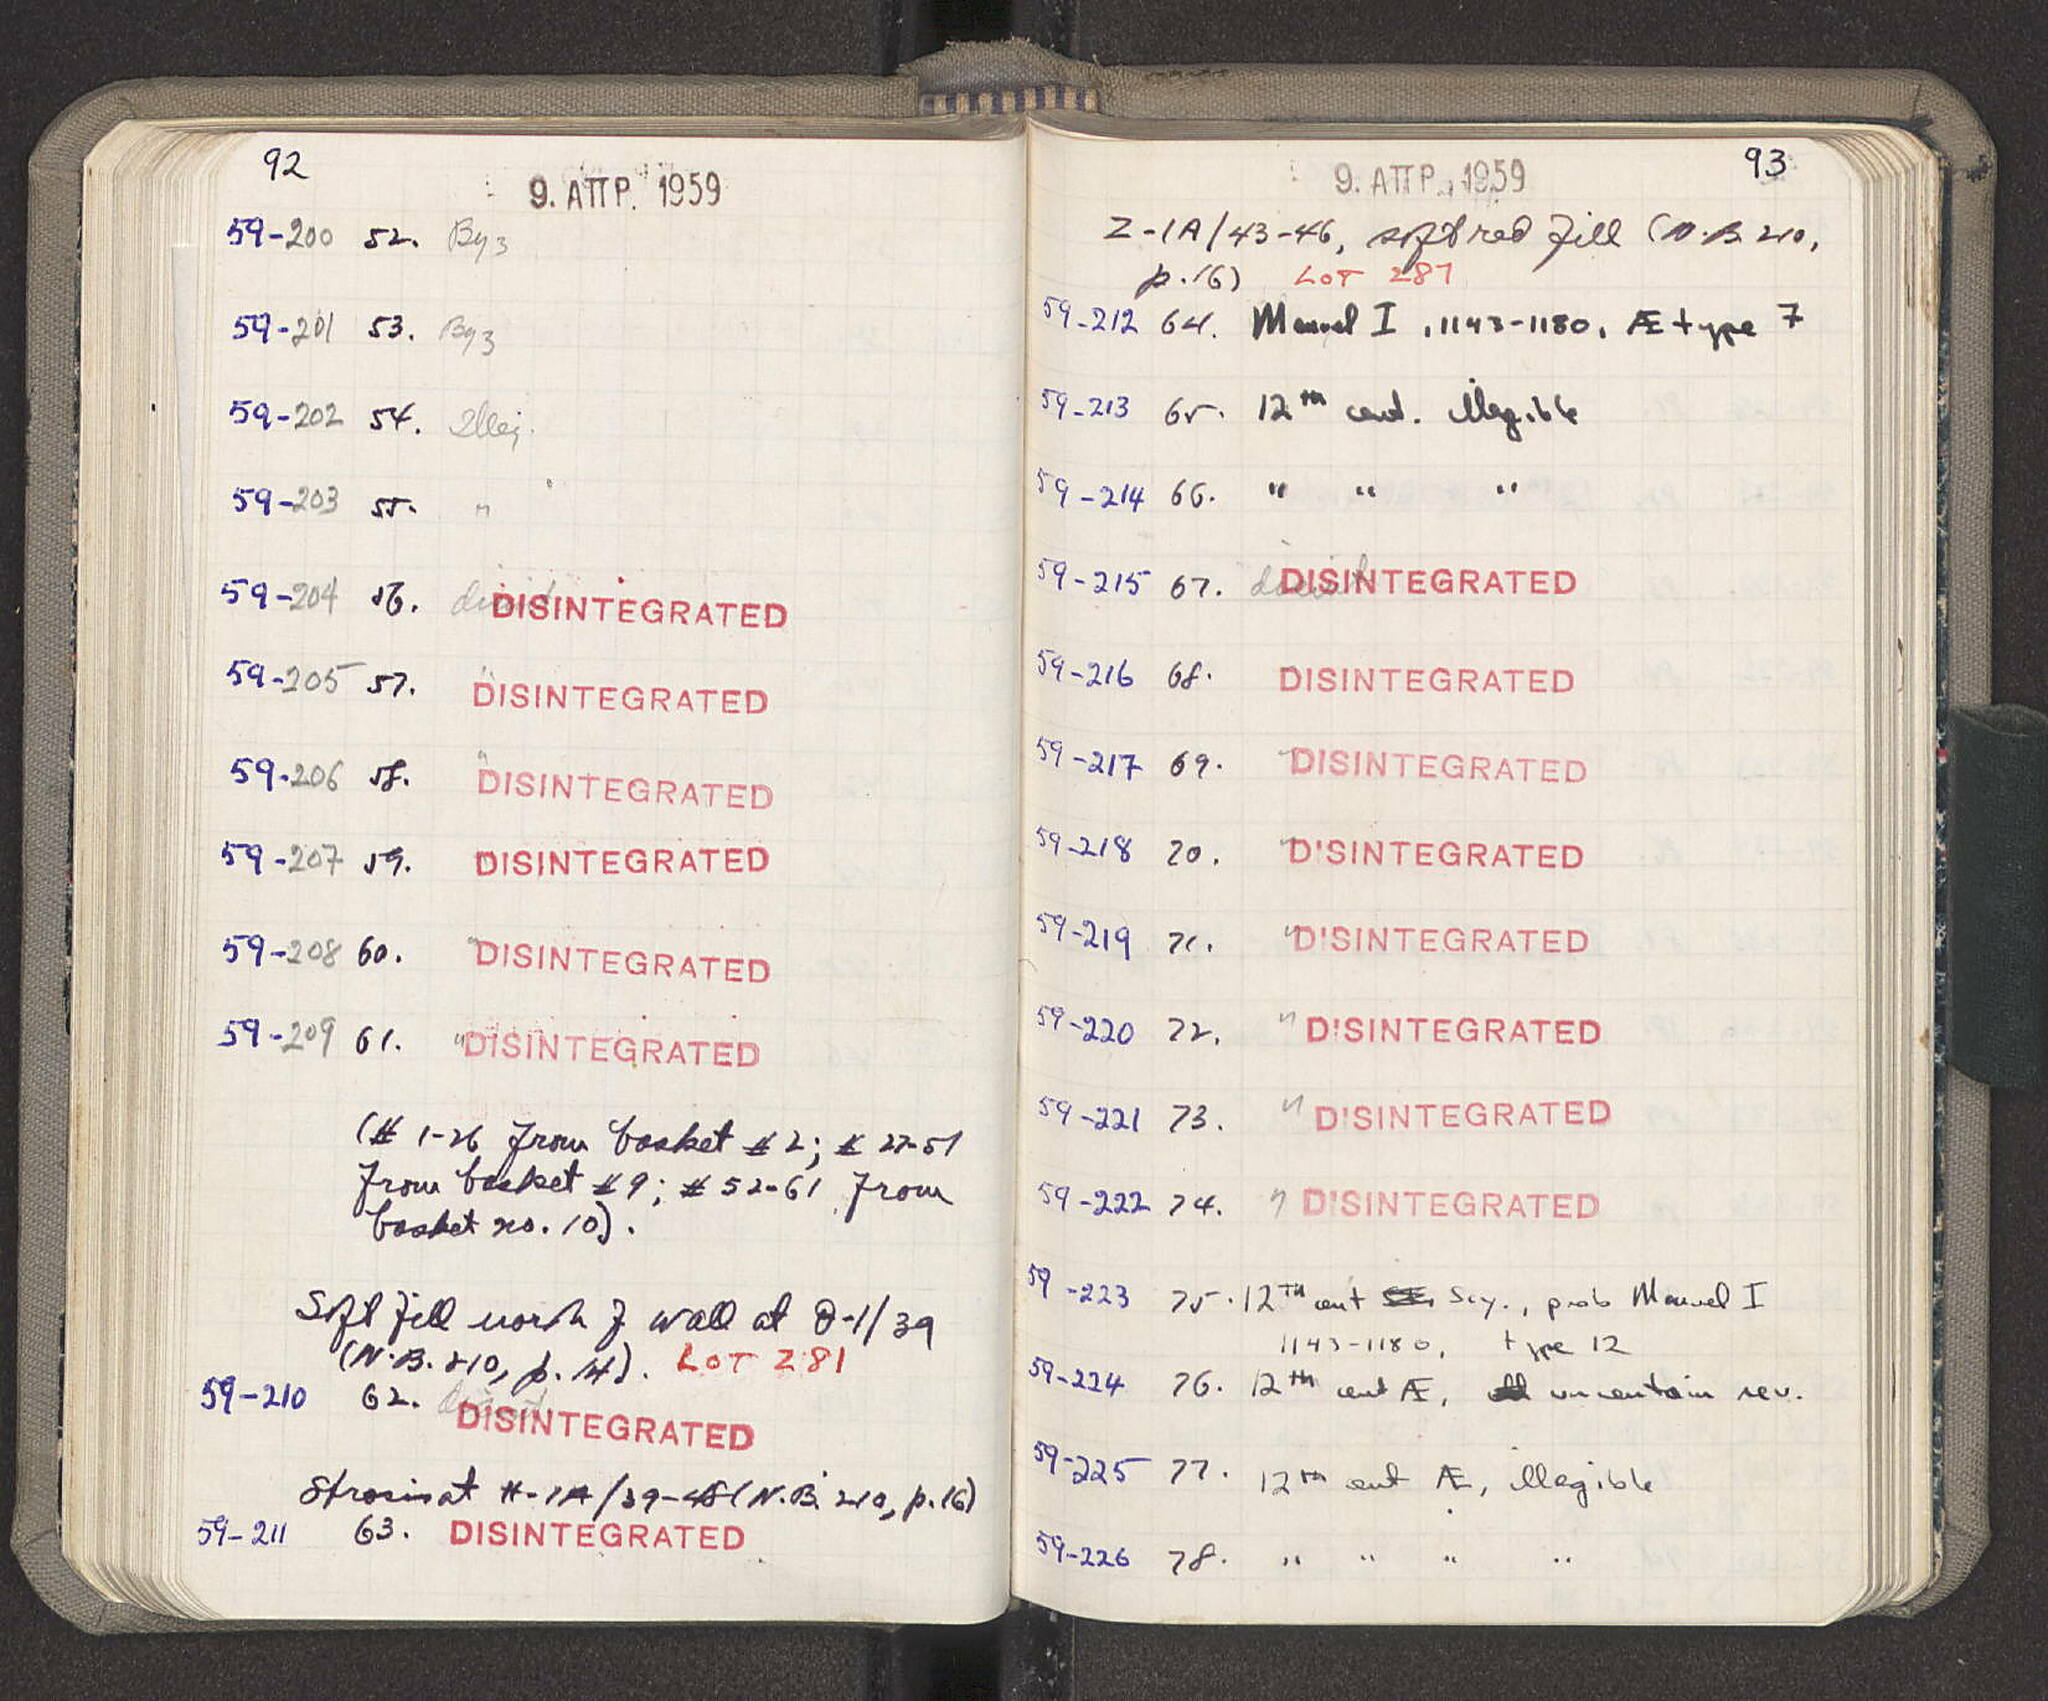 92
9. ΑΠΡ. 1959
59-200 52. Byz
59-201 53. Byz
59-202 54. Illeg.
59-203 55. "
59-204 56. disint DISINTEGRATED
59-205 57. " DISINTEGRATED
59-206 58. " DISINTEGRATED
59-207 59. " DISINTEGRATED
59-208 60. " DISINTEGRATED
59-209 61. " DISINTEGRATED
(# 1-26 from basket # 2; # 27-51
from basket # 9; # 52-61 from
basket no. 10).
Soft fill north of wall at Θ-1/39
(N.B. 210, p. 14). LOT 281
59-210 62. disint. DISINTEGRATED
Strosis at H-1A/39-45 (N.B. 210, p.16)
59-211 63. DISINTEGRATED
93
9. ΑΠΡ. 1959
Z-1A/43-46, soft red fill (N.B. 210,
p.16) LOT 287
59-212 64. Manuel I, 1143-1180, Æ type 7
59-213 65. 12th cent. illegible
59-214 66. " " "
59-215 67. disint DISINTEGRATED
59-216 68. " DISINTEGRATED
59-217 69. " DISINTEGRATED
59-218 70. " DISINTEGRATED
59-219 71. " DISINTEGRATED
59-220 72. " DISINTEGRATED
59-221 73. " DISINTEGRATED
59-222 74. " DISINTEGRATED
59-223 75. 12TH cent Scy., prob Manuel I
1143-1180, type 12
59-224 76. 12th cent Æ, uncertain rev.
59-225 77. 12th cent Æ, illegible
59-226 78. " " " "